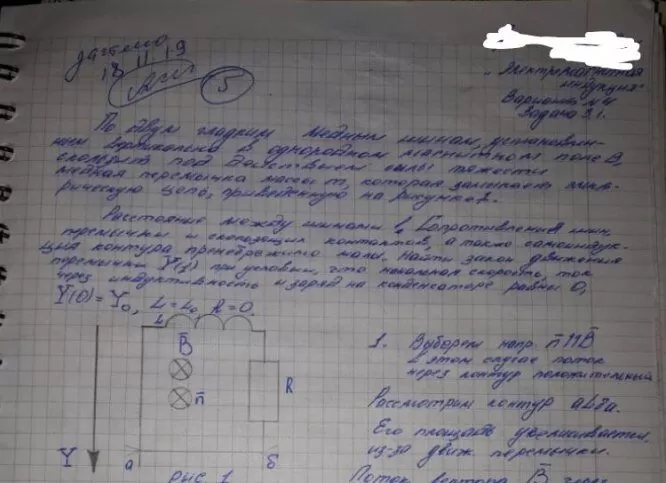 зачтено
18 11 19
5
"Электромагнитная
индукция"
Вариант №4
Задача 3.1.
По двум гладким медным шинам, установлен-
ным вертикально в однородном магнитном поле B,
скользит под действием силы тяжести
медная перемычка массы m, которая замыкает элект-
рическую цепь, приведенную на рисунке.
Расстояние между шинами l. Сопротивление шин,
перемычки и скользящих контактов, а также самоиндук-
ция контура пренебрежимо малы. Найти закон движения
перемычки Y(t) при условии, что начальная скорость, ток
через индуктивность и заряд на конденсаторе равны 0,
Y(0) = Y₀, L = L₀, R = 0.
L
B̄
n̄
R
Y
а
б
рис 1
1. Выберем напр. n̄ ⇈ B̄
в этом случае поток
через контур положительный
Рассмотрим контур
Его площадь увеличивается
из-за движ. перемычки.
Поток вектора B̄ через